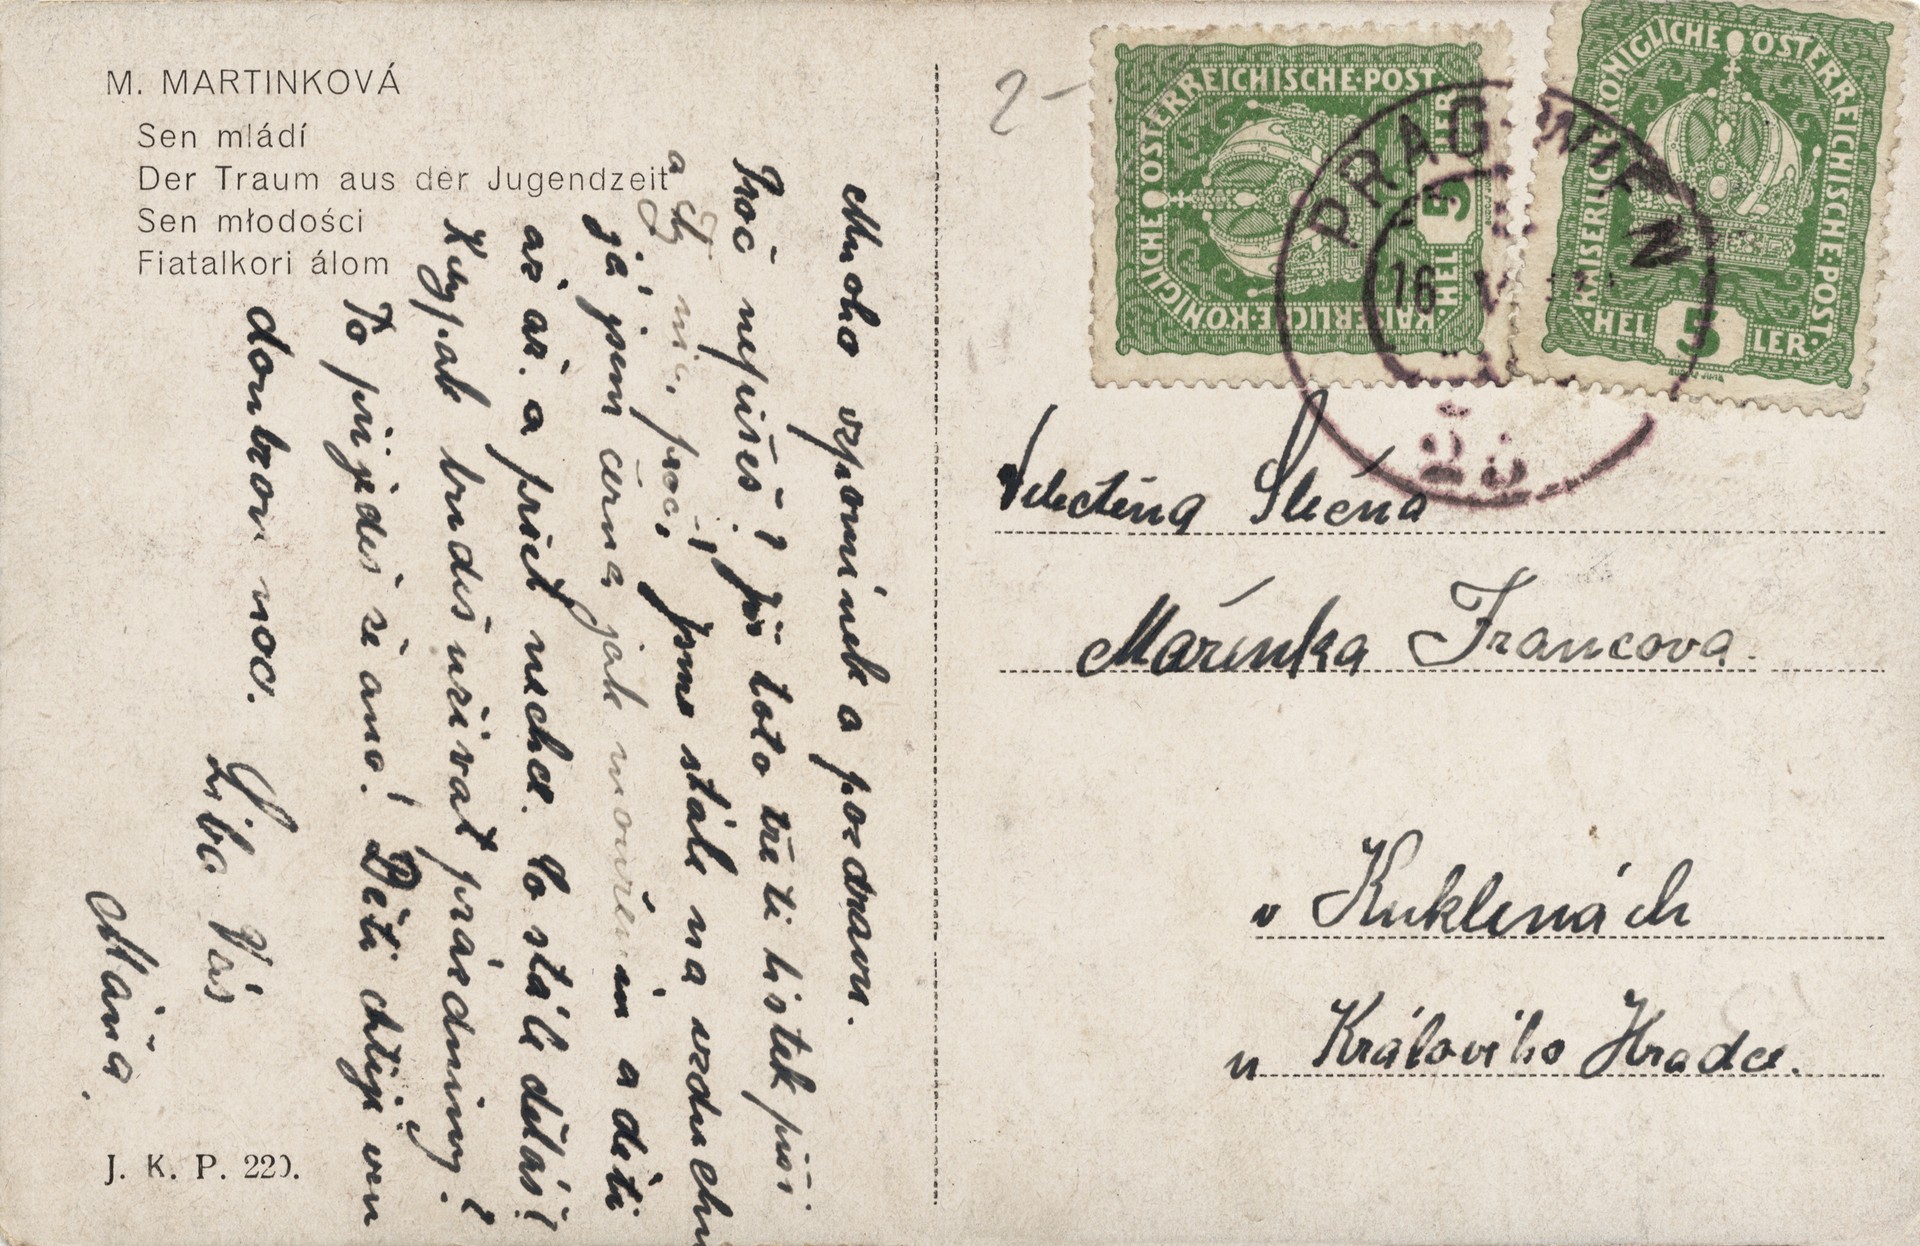 M. MARTINKOVÁ
Sen mládí
Der Traum aus der Jugendzeit
Sen młodości
Fiatalkori álom
Mnoho vzpomínek a pozdravu.
Proč nepíšeš? již toto třetí lístek píši
a ty nic, proč, - jsme stále na vzduchu
já jsem černa jak mouřenín a děti
až až. a psát nechce. Co stále děláš?
Kdypak budeš užívat prázdniny?
To přijedeš že ano! Děti chtějí ven
doubrou noc. Líba Vás
Máňa.
J. K. P. 220.
2-
KAISERLICHE·KÖNIGLICHE ÖSTERREICHISCHE·POST
5 HELLER
KAISERLICHE KÖNIGLICHE ÖSTERREICHISCHE·POST·
·HEL 5 LER·
PRAG WIEN
16 V
Velectěná Slečna
Mářenka Francova
v Kuklenách
u Královího Hradce.